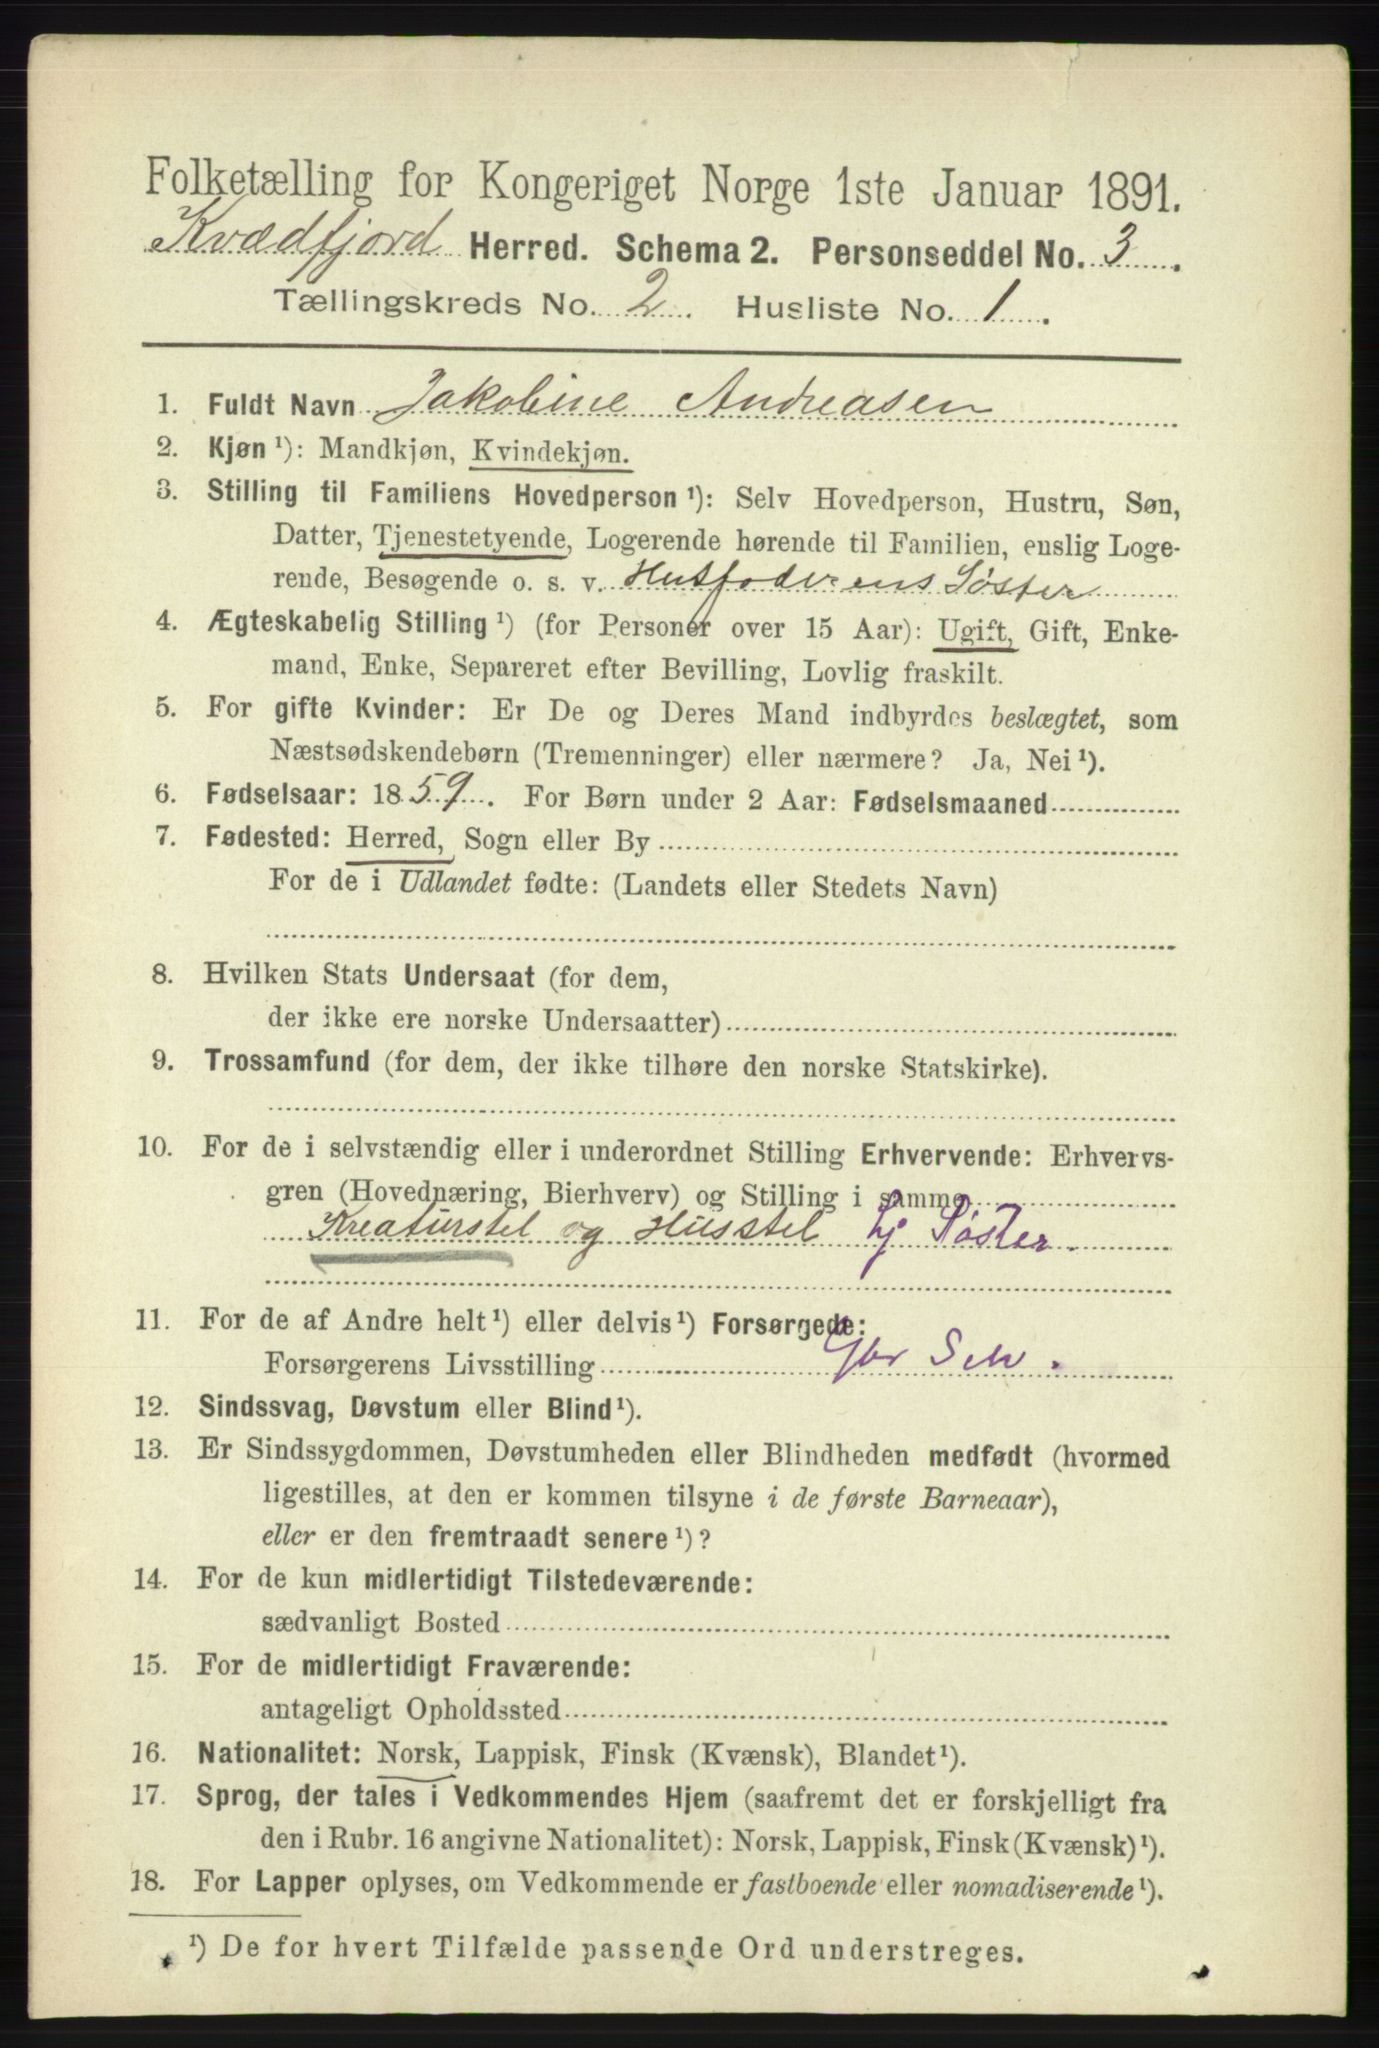 Folketælling for Kongeriget Norge 1ste Januar 1891.
Kvædfjord Herred. Schema 2. Personseddel No. 3.
Tællingskreds No. 2. Husliste No. 1.
1. Fuldt Navn Jakobine Andreasen
2. Kjøn ¹): Mandkjøn, Kvindekjøn.
3. Stilling til Familiens Hovedperson ¹): Selv Hovedperson, Hustru, Søn,
Datter, Tjenestetyende, Logerende hørende til Familien, enslig Loge-
rende, Besøgende o. s. v. Husfaderens Søster
4. Ægteskabelig Stilling ¹) (for Personer over 15 Aar): Ugift, Gift, Enke-
mand, Enke, Separeret efter Bevilling, Lovlig fraskilt.
5. For gifte Kvinder: Er De og Deres Mand indbyrdes beslægtet, som
Næstsødskendebørn (Tremenninger) eller nærmere? Ja, Nei ¹).
6. Fødselsaar: 1859. For Børn under 2 Aar: Fødselsmaaned
7. Fødested: Herred, Sogn eller By
For de i Udlandet fødte: (Landets eller Stedets Navn)
8. Hvilken Stats Undersaat (for dem,
der ikke ere norske Undersaatter)
9. Trossamfund (for dem, der ikke tilhøre den norske Statskirke).
10. For de i selvstændig eller i underordnet Stilling Erhvervende: Erhvervs-
gren (Hovednæring, Bierhverv) og Stilling i samme
Kreaturstel og Husstel Hj Søster.
11. For de af Andre helt ¹) eller delvis ¹) Forsørgede:
Forsørgerens Livsstilling Gbr Selv.
12. Sindssvag, Døvstum eller Blind ¹).
13. Er Sindssygdommen, Døvstumheden eller Blindheden medfødt (hvormed
ligestilles, at den er kommen tilsyne i de første Barneaar),
eller er den fremtraadt senere ¹)?
14. For de kun midlertidigt Tilstedeværende:
sædvanligt Bosted
15. For de midlertidigt Fraværende:
antageligt Opholdssted
16. Nationalitet: Norsk, Lappisk, Finsk (Kvænsk), Blandet ¹).
17. Sprog, der tales i Vedkommendes Hjem (saafremt det er forskjelligt fra
den i Rubr. 16 angivne Nationalitet): Norsk, Lappisk, Finsk (Kvænsk) ¹).
18. For Lapper oplyses, om Vedkommende er fastboende eller nomadiserende ¹).
¹) De for hvert Tilfælde passende Ord understreges.